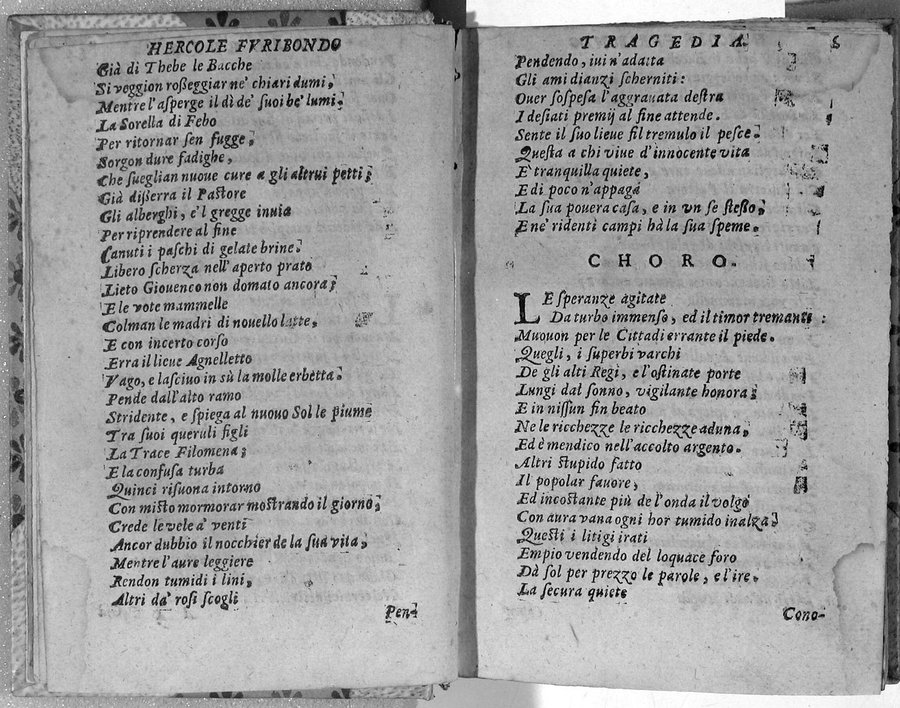 HERCOLE FVRIBONDO
Già di Thebe le Bacche
Si veggion roßeggiar ne' chiari dumi,
Mentre l'asperge il dì de' suoi be' lumi.
La Sorella di Febo
Per ritornar sen fugge,
Sorgon dure fadighe,
Che sueglian nuoue cure a gli altrui petti;
Già disserra il Pastore
Gli alberghi, e'l gregge inuia
Per riprendere al fine
Canuti i paschi di gelate brine.
Libero scherza nell'aperto prato
Lieto Giouenco non domato ancora;
E le vote mammelle
Colman le madri di nouello latte,
E con incerto corso
Erra il lieue Agnelletto
Vago, e lasciuo in sù la molle erbetta.
Pende dall'alto ramo
Stridente, e spiega al nuouo Sol le piume
Tra suoi queruli figli
La Trace Filomena;
E la confusa turba
Quinci risuona intorno
Con misto mormorar mostrando il giorno;
Crede le vele a' venti
Ancor dubbio il nocchier de la sua vita,
Mentre l'aure leggiere
Rendon tumidi i lini,
Altri da' rosi scogli
Pen-
TRAGEDIA. 6
Pendendo, iui n'adatta
Gli ami dianzi scherniti:
Ouer sospesa l'aggrauata destra
I desiati premij al fine attende.
Sente il suo lieue fil tremulo il pesce.
Questa a chi viue d'innocente vita
E' tranquilla quiete,
E di poco n'appaga
La sua pouera casa, e in vn se steßo,
E ne' ridenti campi hà la sua speme.
CHORO.
LE speranze agitate
Da turbo immenso, ed il timor tremante
Muouon per le Cittadi errante il piede.
Quegli, i superbi varchi
De gli alti Regi, e l'ostinate porte
Lungi dal sonno, vigilante honora;
E in nissun fin beato
Ne le ricchezze le ricchezze aduna,
Ed è mendico nell'accolto argento.
Altri stupido fatto
Il popolar fauore,
Ed incostante più de l'onda il volgo
Con aura vana ogni hor tumido inalza;
Questi i litigi irati
Empio vendendo del loquace foro
Dà sol per prezzo le parole, e l'ire.
La secura quiete
Cono-